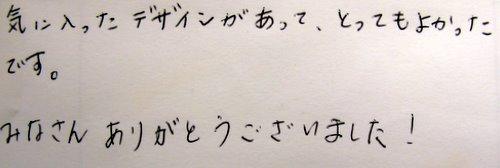 気に入ったデザインがあって、とってもよかった
です。
みなさんありがとうございました！